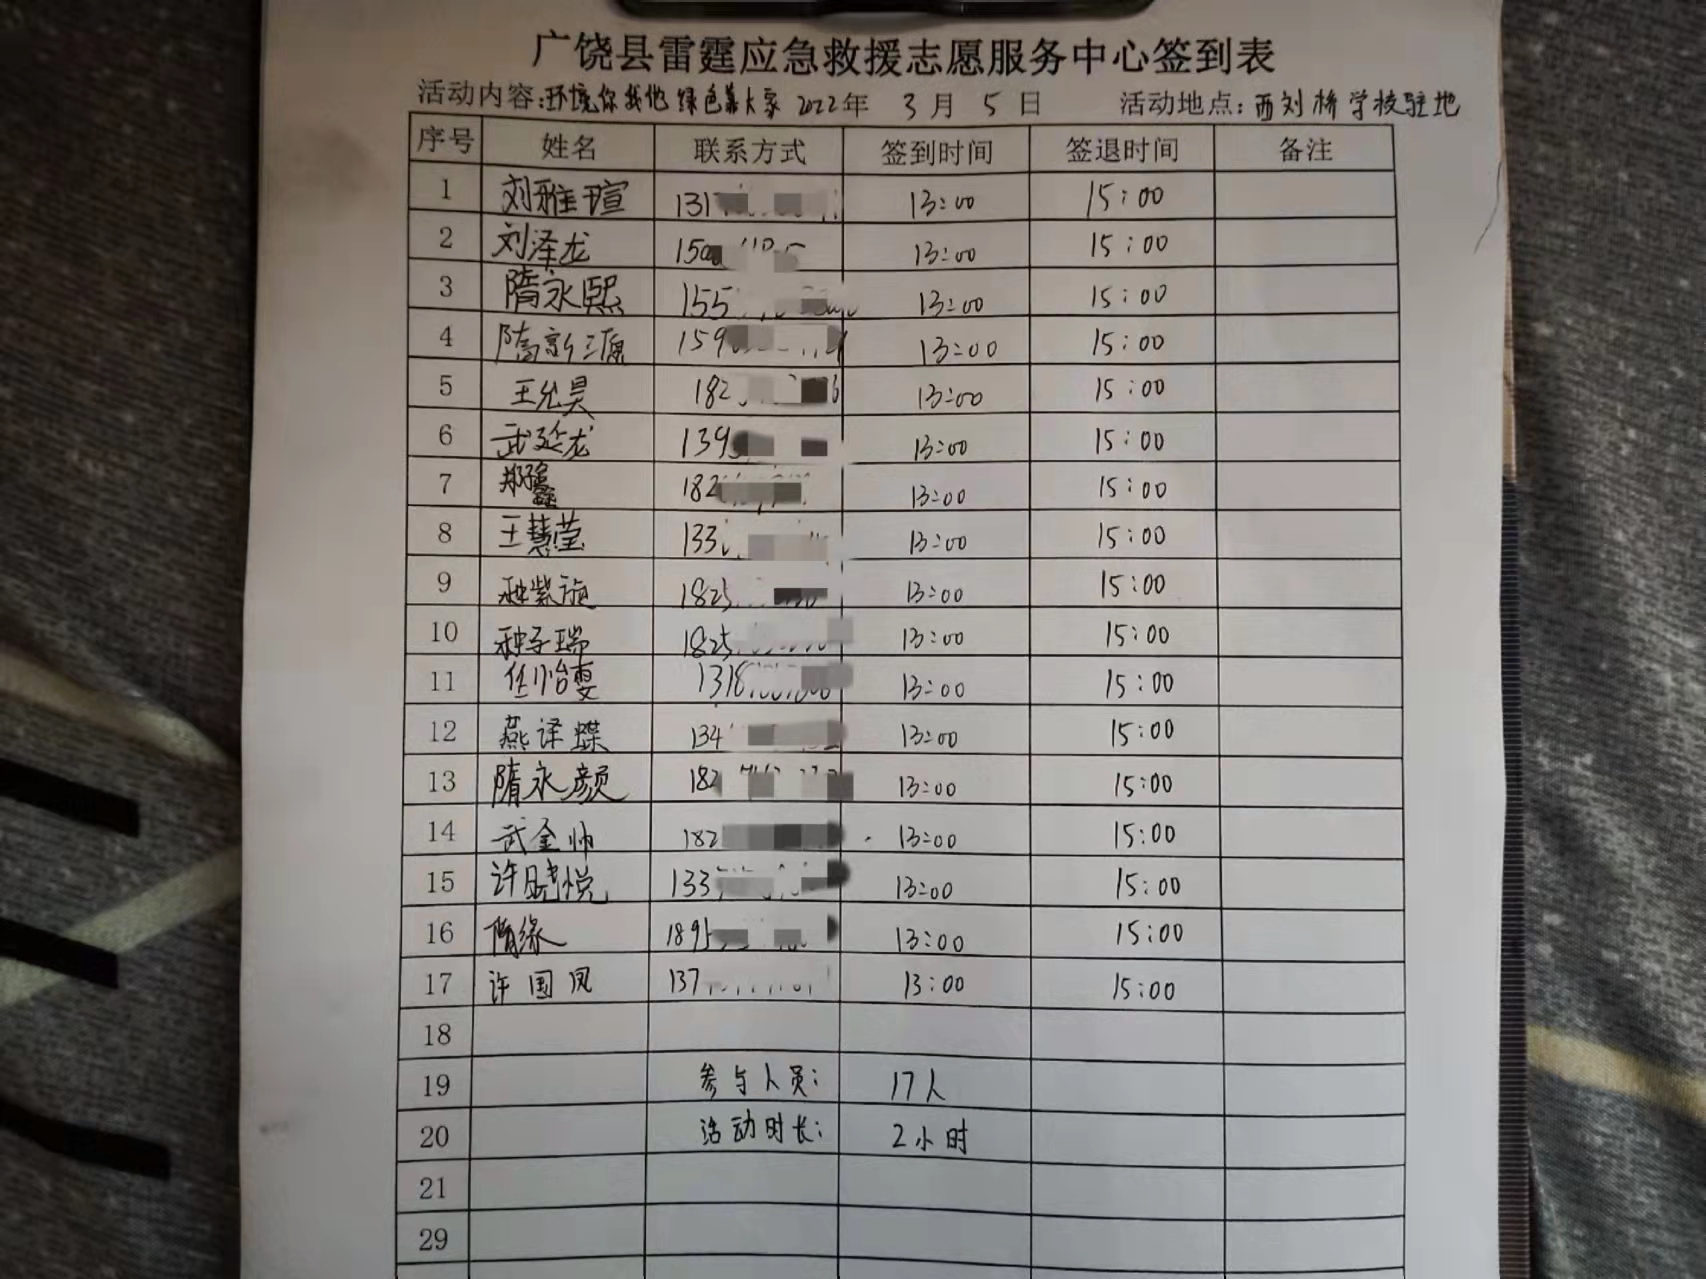 广饶县雷霆应急救援志愿服务中心签到表
活动内容:环境你我他 绿色靠大家 2022年 3月 5日 活动地点:西刘桥学校驻地
序号 姓名 联系方式 签到时间 签退时间 备注
1 刘雅瑄 131 13:00 15:00
2 刘泽龙 150 13:00 15:00
3 隋永熙 155 13:00 15:00
4 隋新源 159 13:00 15:00
5 王允昊 182 13:00 15:00
6 武延龙 139 13:00 15:00
7 郑鑫 182 13:00 15:00
8 王慧莹 133 13:00 15:00
9 种紫旎 1825 13:00 15:00
10 种子瑞 1825 13:00 15:00
11 任怡雯 1318 13:00 15:00
12 燕译蝶 134 13:00 15:00
13 隋永颜 182 13:00 15:00
14 武金帅 182 13:00 15:00
15 许晓悦 133 13:00 15:00
16 隋缘 1895 13:00 15:00
17 许国凤 137 13:00 15:00
18
19 参与人员: 17人
20 活动时长: 2小时
21
29